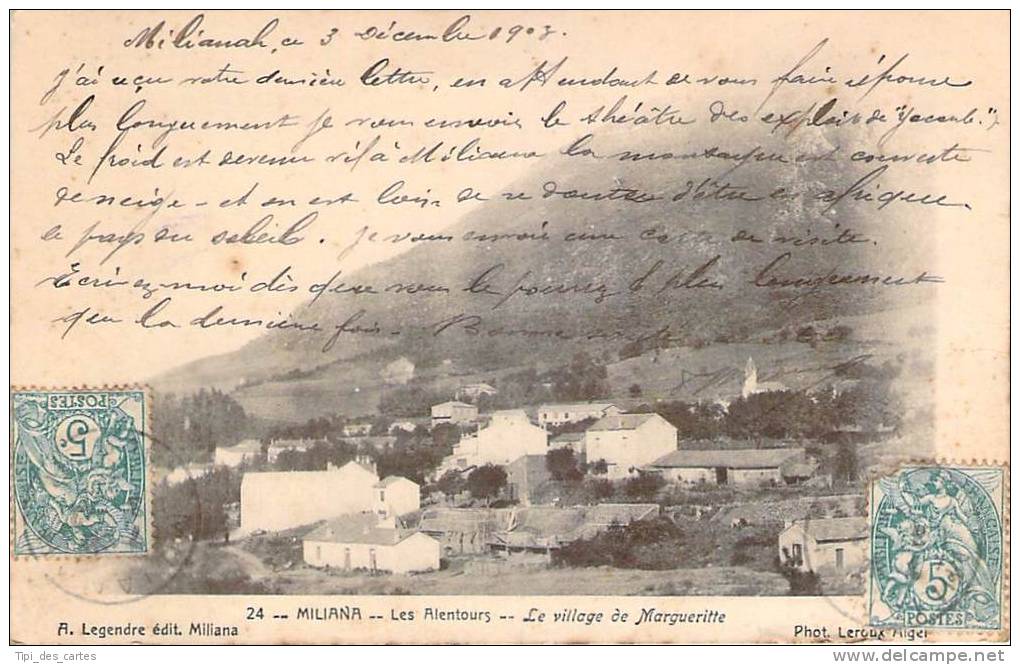 Milianah, ce 3 Décembre 1903.
J'ai reçu votre dernière lettre, en attendant de vous faire réponse
plus longuement je vous envoie le théâtre des exploits de "Yacoub".
Le froid est devenu vif à Miliana la montagne est couverte
de neige - et on est loin de se douter d'être en afrique
le pays du soleil. je vous envoie une carte de visite.
Écrivez-moi dès que vous le pourrez et plus longuement
que la dernière fois - Bonne
POSTES
5
24 -- MILIANA -- Les Alentours -- Le village de Margueritte
A. Legendre édit. Miliana
Phot. Leroux Alger
5
POSTES
Tipi_des_cartes
www.delcampe.net